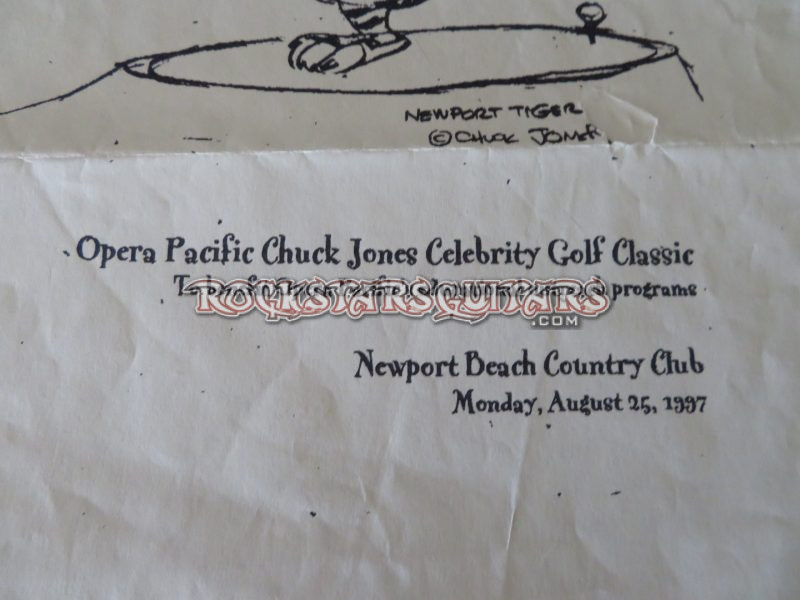 NEWPORT TIGER
© CHUCK JONES
Opera Pacific Chuck Jones Celebrity Golf Classic
To programs
ROCKSTARSGUITARS
.COM
Newport Beach Country Club
Monday, August 25, 1997